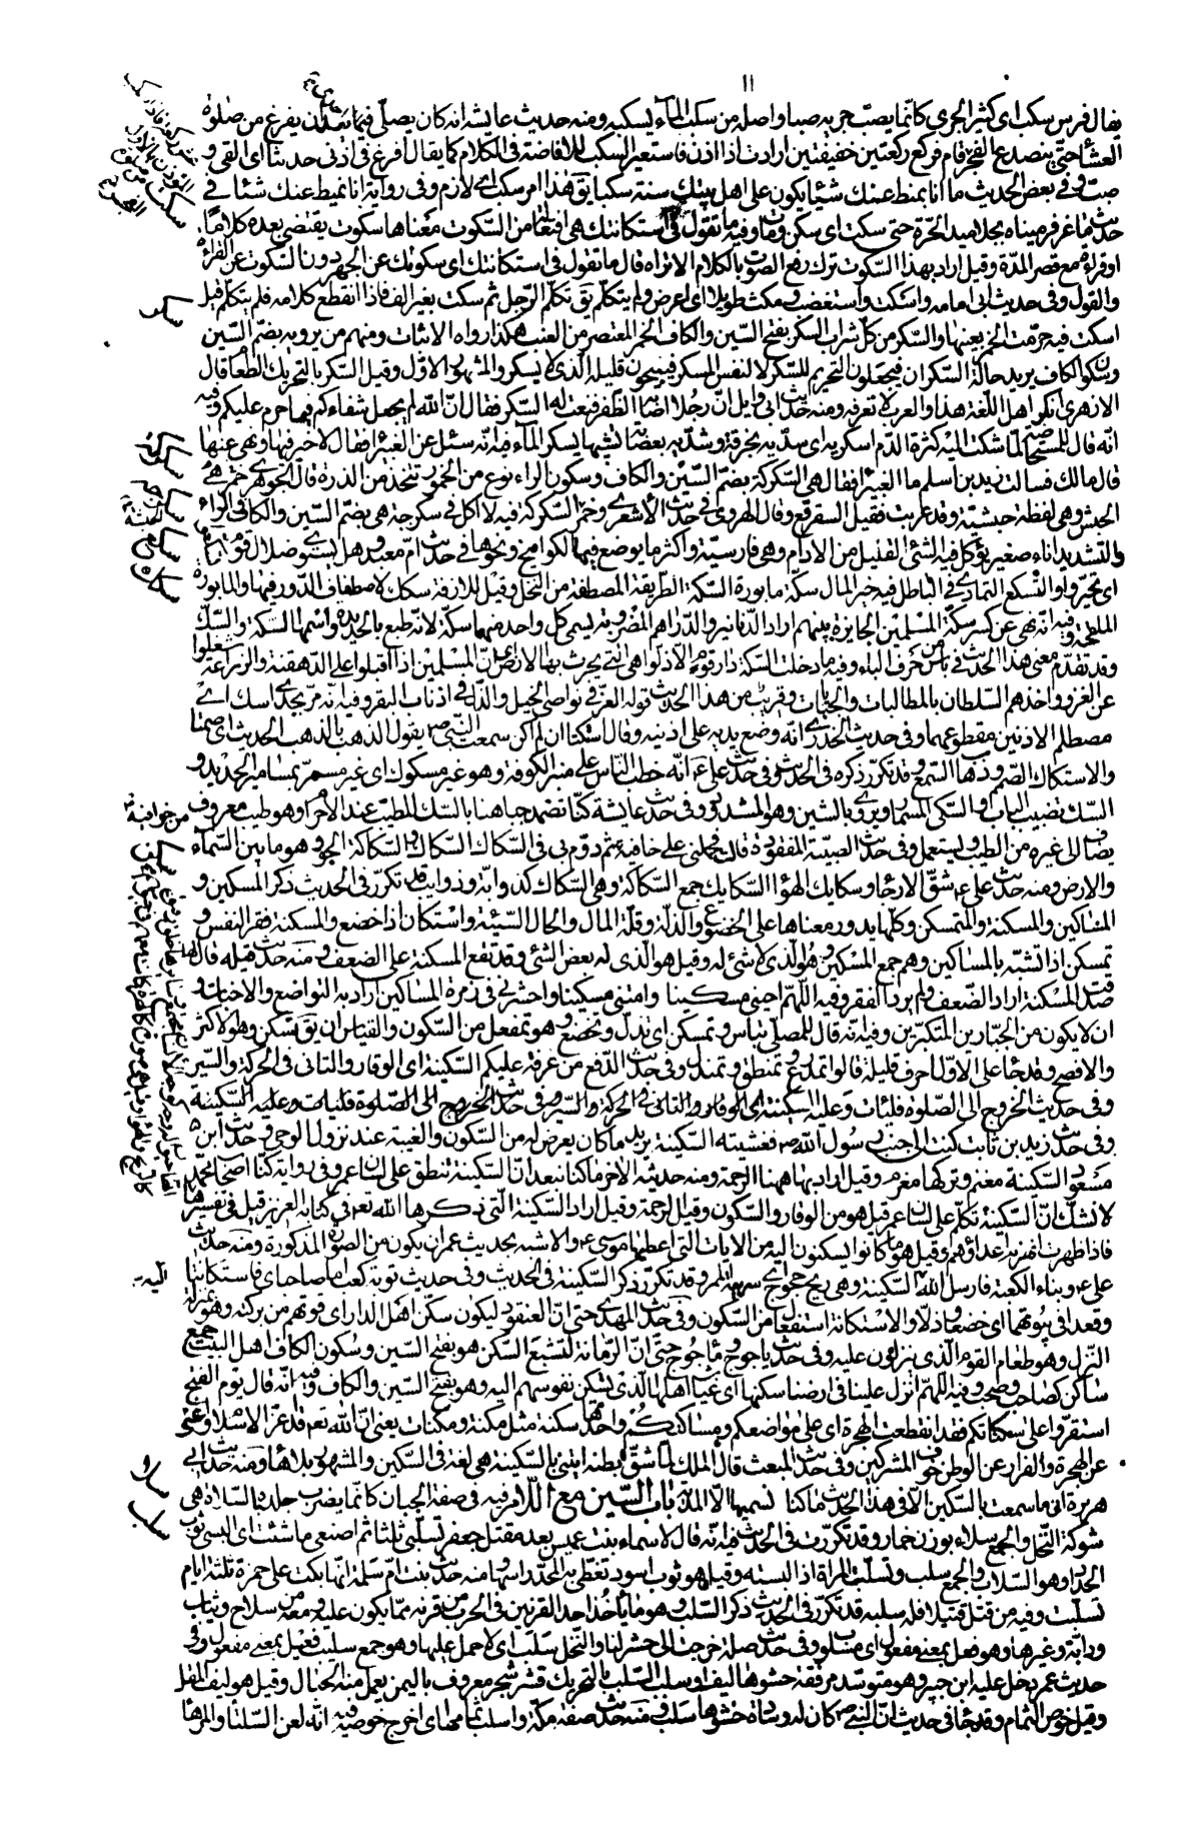 ١١
يقال فرس سكب اى كثير الجرى كانّما يصبّ جريه صبا واصله من سكب الماء يسكبه ومنه حديث عايشه انه كان يصلّى فيما بين كذا حتى يفرغ من صلوة
العشا حتى ينصدع الفجر قام فركع ركعتين خفيفتين ارادت اذا اذن فاستعير السكب للافاضة فى الكلام كما يقال افرغ فى اذنى حديثا اى القى و
صبّ وفى بعض الحديث ما انا بمنط عنك شيئا يكون على اهل بيتك سنة سكبا يق هذا امر سكب اى لازم وفى رواية انا نميط عنك شئا فى
حديث ماعز فرميناه بجلاميد الحرّة حتى سكت اى سكن ومات وفيه ما تقول فى اسكاتتك هى افعالة من السّكوت معناها سكوت يقتضى بعده كلاما
او قراءة مع قصر المدّة وقيل اراد بهذا السّكوت ترك رفع الصّوت بالكلام الا تراه قال ما تقول فى اسكاتتك اى سكوتك عن الجهر دون السّكوت عن القراءة
والقول وفى حديث ابى امامه واسكت واستغضب ومكث طويلا اى اعرض ولم يتكلّم يق تكلّم الرّجل ثم سكت بغير الف فاذا انقطع كلامه فلم يتكلّم قيل
اسكت فيه حرّمت الخمر بعينها والسّكر من كلّ شراب السّكر بفتح السّين والكاف الخمر المعتصر من العنب هكذا رواه الاثبات ومنهم من يرويه بضمّ السّين
وسكون الكاف يريد حالة السّكران فيجعلون التّحريم للسّكر لا لنفس المسكر فيبيحون قليله الّذى لا يسكر والمشهور الاوّل وقيل السّكر بالتحريك الطّعام قال
الازهرى انكر اهل اللّغة هذا والعرب لا تعرفه ومنه حديث ابى وايل انّ رجلا اصابه الصّقر فنعت له السّكر فقال انّ الله لم يجعل شفاءكم فيما حرّم عليكم وفيه
انّه قال للمستحاضة لمّا شكت اليه كثرة الدّم اسكريه اى سدّيه بخرقة وشدّيه بعصابة تشبيها بسكر الماء فيه انّه سئل عن الغبيراء فقال لا خير فيها ونهى عنها
قال مالك فسالت زيد بن اسلم ما الغبيرا فقال هى السّكركة بضمّ السّين والكاف وسكون الراء نوع من الخمور تتخذ من الذرة قال الجوهرى خمر
الحبش وهى لفظة حبشيّة وقد عرّبت فقيل السقرقع وقال الهروى فى حديث الاشعرى وخمر السّكركة فيه لا اكل فى سكرجة هى بضمّ السّين والكاف والراء
والتشديد اناء صغير يؤكل فيه الشّئ القليل من الادام وهى فارسيّة واكثر ما يوضع فيها الكوامخ ونحوها فى حديث امّ معبد وهل يستوى ضلال قوم
اى تحيّروا والتّسكع التمادى فى الباطل فيه خير المال سكّة مابورة السّكة الطّريقة المصطفة من النّخل وقيل للازقة سكك لاصطفاف الدّور فيها والمابورة
الملقّحة وفيه انّه نهى عن كسر سكّة المسلمين الجايزة بينهم اراد الدّنانير والدّراهم المضروبة يسمى كل واحد منهما سكّة لانّه طبع بالحديدة واسمها السّكة والسّك
وقد تقدّم معنى هذا الحديث فى باس من حرف الباء وفيه ما دخلت السّكة دار قوم الا ذلوا هى التى يحرث بها الارض اى انّ المسلمين اذا اقبلوا على الدّهقنة والزّراعة شغلوا
عن الغزو واخذهم السّلطان بالمطالبات والجبايات وقريب من هذا الحديث قوله العزّ فى نواصى الخيل والذّل فى اذناب البقر وفيه انّه مرّ بجدى اسك اى
مصطلم الاذنين مقطوعهما وفى حديث الخدرى انّه وضع يديه على اذنيه وقال استكتا ان لم اكن سمعت النّبى ص يقول الذهب بالذهب الحديث اى صمّتا
والاستكاك الصّمم وذهاب السّمع وقد تكرّر ذكره فى الحديث وفى حديث على ع انّه خطب الناس على منبر الكوفة وهو غير مسكوك اى غير مسمّر بمسامير الحديد و
السّك تضبيب الباب والسّكى المسمار ويروى بالشين وهو المشدود وفى حديث عايشة كنّا نضمد جباهنا بالسّك المطيّب عند الاحرام وهو طيب معروف
يضاف الى غيره من الطيب ويستعمل وفى حديث الصبيّة المفقودة قالت فحملنى على خافيته ثم دوّم بى فى السّكاك السّكاك والسّكاكة الجوّ وهو ما بين السّماء
والارض ومنه حديث على ع شقّ الارجاء وسكايك الهواء السّكايك جمع السّكاكة وهى السّكاك كذوابة وذوايب قد تكرّر فى الحديث ذكر المسكين و
المساكين والمسكنة والتمسكن وكلّها يدور معناها على الخضوع والذلّة وقلّة المال والحال السّيئة واستكان اذا خضع والمسكنة فقر النفس و
تمسكن اذا تشبّه بالمساكين وهم جمع المسكين وهو الّذى لا شئ له وقيل هو الّذى له بعض الشئ وقد تقع المسكنة على الضعف ومنه حديث قيله قال لها
صدقت المسكنة اراد الضّعف ولم يرد الفقر وفيه اللّهمّ احينى مسكينا وامتنى مسكينا واحشرنى فى زمرة المساكين اراد به التواضع والاخبات و
ان لا يكون من الجبّارين المتكبّرين وفيه انّه قال للمصلّى تباس وتمسكن اى تذلّل وتخضع وهو تمفعل من السّكون والقياس ان يق تسكّن وهو الاكثر
والافصح وقد جاء على الاوّل احرف قليلة قالوا تمدرع وتمنطق وتمندل وفى حديث الدّفع من عرفة عليكم السّكينة اى الوقار والتّانى فى الحركة والسّير
وفى حديث الخروج الى الصّلوة فليأت وعليه السّكينة اى الوقار والتانى فى الحركة والسّير وفى حديث الخروج الى الصّلوة فليات وعليه السّكينة
وفى حديث زيد بن ثابت كنت الى جنب رسول الله ص فغشيته السّكينة يريد ما كان يعرض له من السّكون والغيبة عند نزول الوحى وفى حديث ابن
مسعود السّكينة مغنم وتركها مغرم وقيل اراد بها ههنا الرحمة ومنه حديثه الاخر ما كنا نبعد انّ السّكينة تنطق على لسان عمر وفى رواية كنّا اصحاب محمّد
لا نشكّ انّ السّكينة تكلّم على لسان عمر قيل هو من الوقار والسّكون وقيل الرحمة وقيل اراد السّكينة الّتى ذكرها الله تعم فى كتابه العزيز قيل فى تفسيرها
فاذا ظهرت انهزم اعداؤهم وقيل هو ما كانوا يسكنون اليه من الايات التى اعطيها موسى ع والاشبه بحديث عمر ان يكون من الصّورة المذكورة ومنه حديث
على ع وبناء الكعبة فارسل الله السّكينة وهى ريح خجوج اى سريعة الممر وقد تكرّر ذكر السّكينة فى الحديث وفى حديث توبة كعب امّا صاحباى فاستكانا
وقعدا فى بيوتهما اى خضعا وذلّا والاستكانة استفعال من السّكون وفى حديث المهدى حتى انّ العنقود ليكون سكن اهل الدار اى قوتهم من بركته وهو بمنزلة
النّزل وهو طعام القوم الّذى ينزلون عليه وفى حديث ياجوج وماجوج حتى انّ الرّمانة لتشبع السّكن هو بفتح السّين وسكون الكاف اهل البيت جمع
ساكن كصاحب وصحب وفيه اللّهمّ انزل علينا فى ارضنا سكنها اى غياث اهلها الّذى تسكن نفوسهم اليه وهو بفتح السّين والكاف وفيه انّه قال يوم الفتح
استقرّوا على سكناتكم فقد انقطعت الهجرة اى على مواضعكم ومساكنكم واحدتها سكنة مثل مكنة ومكنات يعنى انّ الله تعم قد عزّ الاسلام واغنى
عن الهجرة والفرار عن الوطن خوف المشركين وفى حديث المبعث قال الملك لمّا شقّ بطنه ايتنى بالسّكينة هى لغة فى السّكين والمشهور بلا هاء ومنه حديث ابى
هريرة ان ما سمعت بالسّكين الا فى هذا الحديث ما كنا نسميها الّا المدية باب السّين مع اللّام فيه فى صفة الجبان كانّما يضرب جلده بالسّلاءة هى
شوكة النّخل والجمع سلاء بوزن خمار وقد تكرّرت فى الحديث فيه انّه قال لاسماء بنت عميس بعد مقتل جعفر تسلّبى ثلثا ثم اصنعى ما شئت اى البسى ثوب
الحداد وهو السّلاب والجمع سلب وتسلّبت المراة اذا لبسته وقيل هو ثوب اسود تغطى به المحدّ راسها ومنه حديث بنت امّ سلمة انّها بكت على حمزة ثلثة ايام
تسلّبت وفيه من قتل قتيلا فله سلبه قد تكرّر فى الحديث ذكر السّلب وهو ما ياخذ احد القرنين فى الحرب من قرنه ممّا يكون عليه ومعه من سلاح وثياب
ودابّة وغيرها وهو فعل بمعنى مفعول اى مسلوب وفى حديث صلة خرجت الى جشر لنا والنّخل سلب اى لا حمل عليها وهو جمع سليب فعيل بمعنى مفعول وفى
حديث عمر دخل عليه ابن جبير وهو متوسّد مرفقة حشوها ليف او سلب السّلب بالتّحريك قشر شجر معروف باليمن يعمل منه الحبال وقيل هو ليف المقل
وقيل خوص الثّمام وقد جاء فى حديث انّ النّبى ص كان له وسادة حشوها سلب ومنه حديث صفة مكّة واسلب ثمامها اى اخرج خوصه فيه انّه لعن السّلتاء والمرهاء
سكر
سكركة
سكرجة
سكع
سكك
اليه
سلاء
سلب